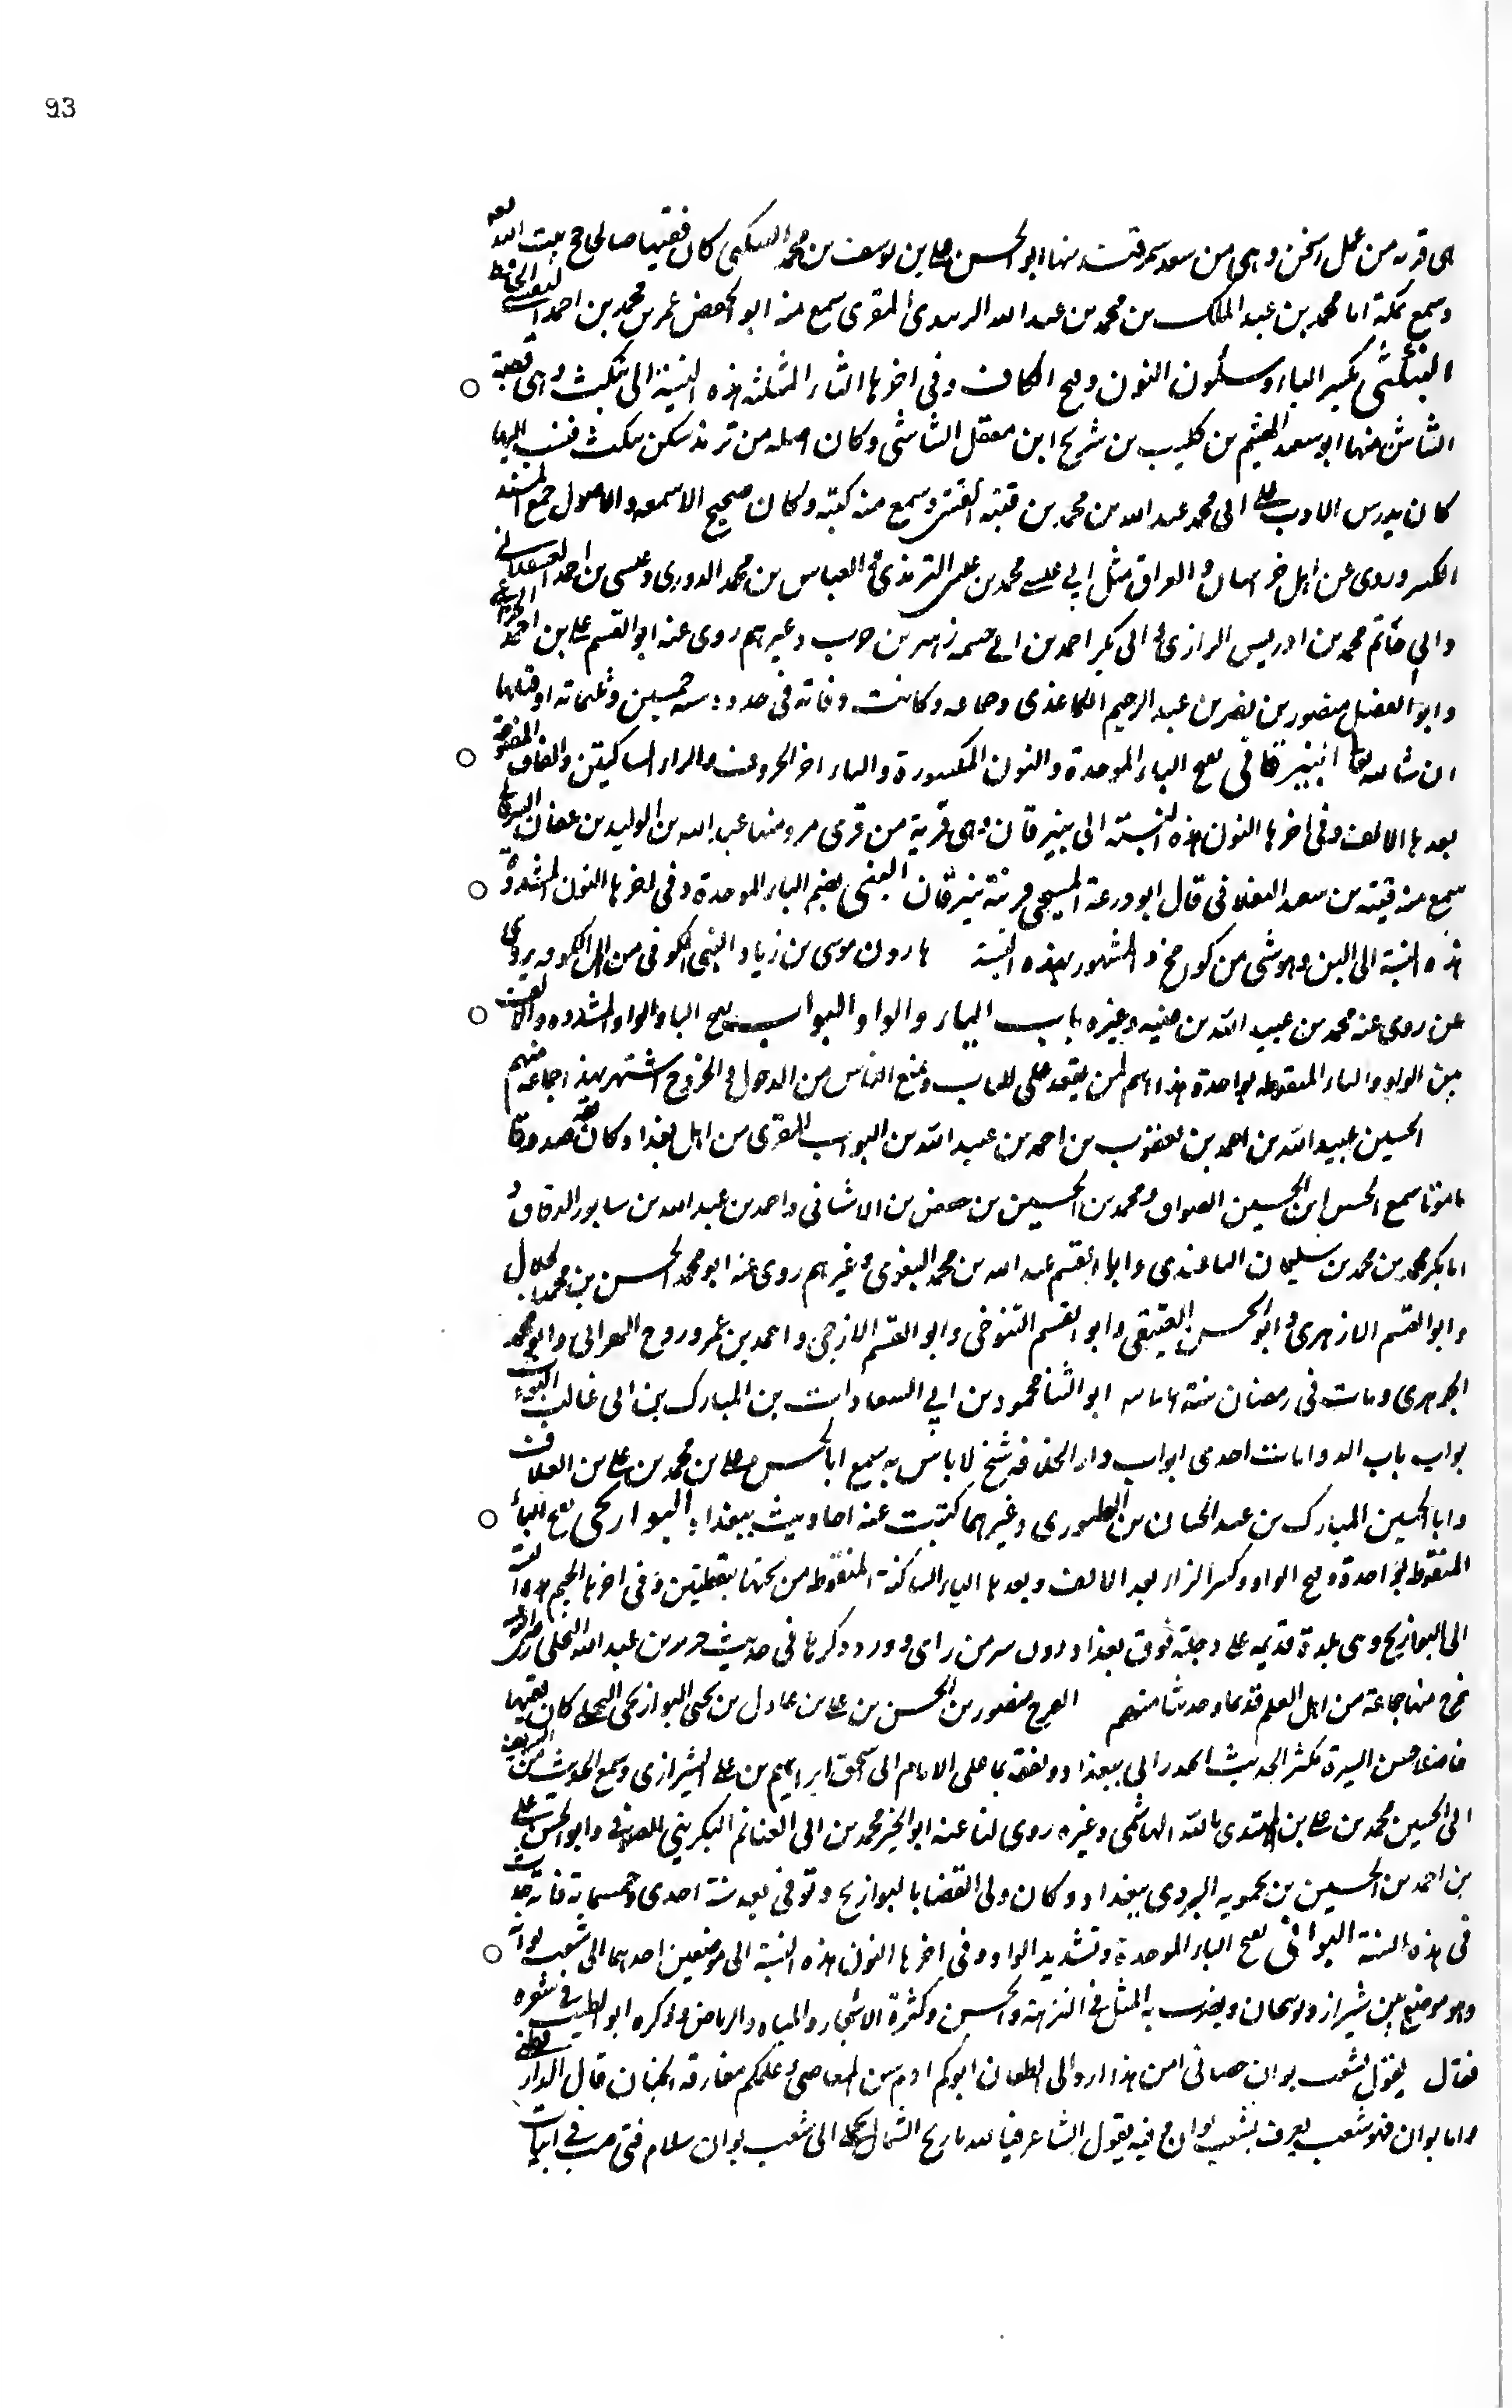 93
هى قرية من عمل اسخن وهى من سعد سمرقند منها ابو الحسن على بن يوسف بن محمد السكبى كان فقيها صالحا حج بيت الله
وسمع بمكة ابا محمد بن عبد الملك بن محمد بن عبد الله الزبيدى المقرى سمع منه ابو الحفص عمر بن محمد بن احمد النسفى الحافظ
البنكثى بكسر الباء وسكون النون وفتح الكاف وفى اخرها الثاء المثلثة هذه النسبة الى بنكث وهى قصبة
الشاش منها ابو سعد الهيثم بن كليب بن شريح ابن معقل الشاشى وكان اصله من ترمذ سكن بنكث فنسب اليها
كان يدرس الادب على ابى محمد عبد الله بن محمد بن قتيبة القتبى وسمع منه كتبه وكان صحيح الاسمعه والاصول جمع المسند
الكبير وروى عن اهل خراسان والعراق مثل ابى عيسى محمد بن عيسى الترمذى والعباس بن محمد الدورى وعيسى بن احمد العسقلانى
وابى حاتم محمد بن ادريس الرازى وابى بكر احمد بن ابى خيثمه زهير بن حرب وغيرهم روى عنه ابو القسم على بن احمد الخزاعى
وابو الفضل منصور بن نصر بن عبد الرحيم الكاغذى وجماعه وكانت وفاته فى حدود سنه خمسين وثلثمائة او قبلها
ان شا الله تعا البنيرقانى بفتح الباء الموحدة والنون المكسورة والياء اخر الحروف والراء الساكنتين والقاف المفتوحة
بعدها الالف وفى اخرها النون هذه النسبة الى بنيرقان وهى قرية من قرى مرو منها عبد الله بن الوليد بن عفان
سمع منه قتيبة بن سعيد البغلانى قال ابو زرعة المسيحى قرية بنيرقان البنى بضم الباء الموحدة وفى اخرها النون المشددة
هذه النسبة الى البن وهو شى من كورمخ والمشهور بهذه النسبة هارون موسى بن زياد البنى الكوفى من اهل الكوفه يروى
عن روى عنه محمد بن عبيد الله بن عتبه وغيره باب الباء والواو البواب بفتح الباء والواو المشدده والالف
بين الواو والباء المنقوطه بواحدة هذا اسم لمن يقعد على الباب ويمنع الناس من الدخول والخروج اشتهر بهذا جماعه منهم
الحسين عبيد الله بن احمد بن يعقوب بن احمد بن عبيد الله بن البواب المقرى من اهل بغداد وكان ثقة صدوقا
مامونا سمع الحسن ابن الحسين الصواف ومحمد بن الحسين بن حفص بن الاشنانى واحمد بن عبد الله بن سابور الدقاق و
ابا بكر محمد بن محمد بن سليمان الباغندى وابا القسم عبد الله بن محمد البغوى وغيرهم روى عنه ابو محمد الحسن بن محمد الخلال
وابو القسم الازهرى وابو الحسن العتيقى وابو القسم التنوخى وابو القسم الازجى واحمد بن عمر وروح النهروانى وابو محمد
الجوهرى ومات فى رمضان سنة ابو الثنا محمود بن ابى السعادات بن المبارك بن ابى غالب البواب
بواب باب الدوامات احدى ابواب دار الخلافه شيخ لا باس به سمع ابا الحسن على بن محمد بن على بن العلاف
وابا الحسين المبارك بن عبد الجبار بن الطيورى وغيرهما كتبت عنه احاديث ببغداد البوازيجى بفتح الباء
المنقوطه بواحدة وفتح الواو وكسر الزاء بعد الالف وبعدها الياء الساكنة المنقوطه من تحتها بنقطتين وفى اخرها الجيم هذه النسبة
الى البوازيج وهى بلدة قديمه على دجلة فوق بغداد دون سر من راى وورد ذكرها فى حديث جرير بن عبد الله البجلى رضى الله عنه
خرج منها جماعة من اهل العلم قديما وحديثا منهم الفرج منصور بن الحسن بن على بن عادل بن يحيى البوازيجى البجلى كان فقيها
فاضلا حسن السيرة مكثر الحديث انحدر الى بغداد وتفقه بها على الامام ابى اسحق ابراهيم بن على الشيرازى وسمع الحديث من الشريف
ابى الحسين محمد بن على بن المهتدى بالله الهاشمى وغيره روى لنا عنه ابو الخير محمد بن ابى الغنائم التكريتى الصوفى وابو الحسن على
بن احمد بن الحسين بن محمويه اليزدى ببغداد وكان ولى القضا بالبوازيج وتوفى بعد سنة احدى وخمسمائة فانه حدث
فى هذه السنة البوانى بفتح الباء الموحدة وتشديد الواو وفى اخرها النون هذه النسبة الى موضعين احدهما الى شعب بوان
وهو موضع بين شيراز ونوبنجان ويضرب به المثل فى النزهة والحسن وكثرة الاشجار والمياه والرياض وذكره ابو الطيب فى شعره
فقال يقول بشعب بوان حصانى امن هذا يسار الى الطعان ابوكم ادم سن المعاصى وعلمكم مفارقة الجنان قال الدارقطنى
واما بوان فهو شعب يعرف بشعب بوان وفيه يقول الشاعر فبالله يا ريح الشمال تحملى الى شعب بوان سلام فتى صب فى ابيات